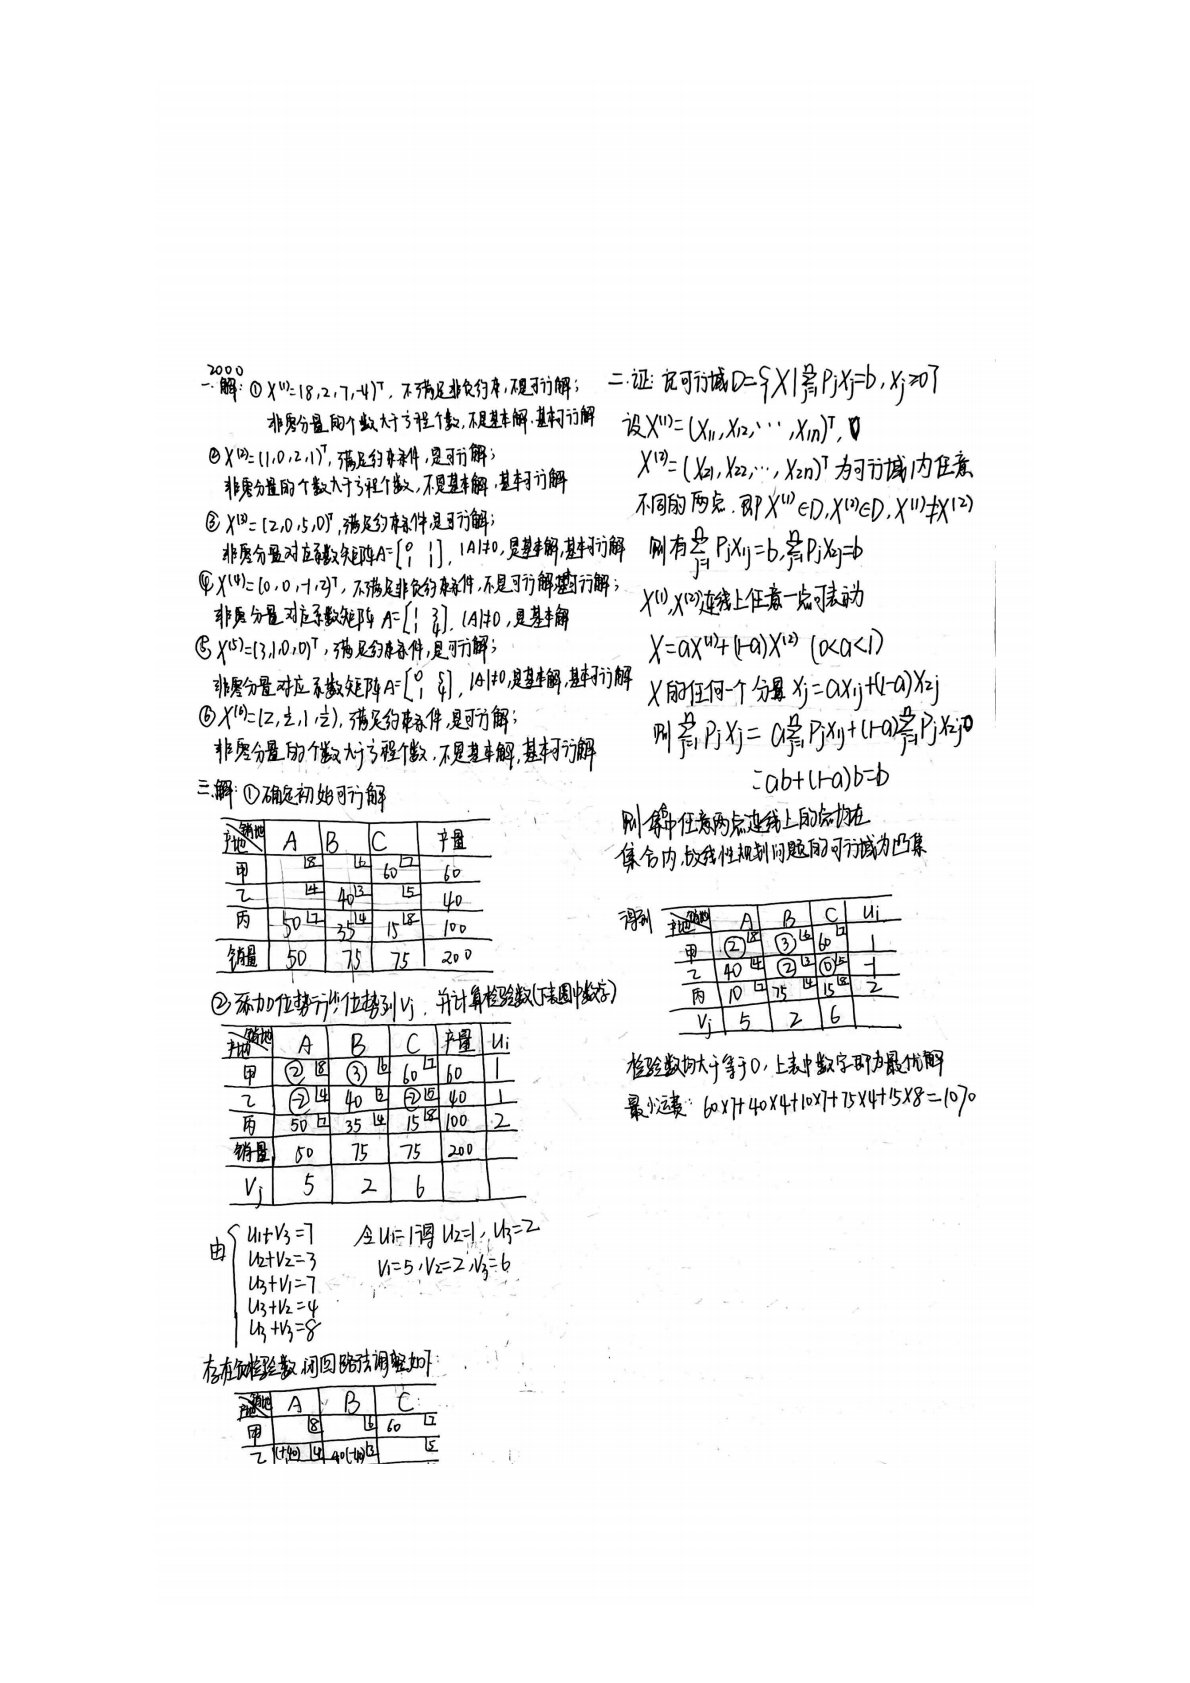 2000
一.解: ① X⁽¹⁾=(8,2,7,-4)ᵀ, 不满足非负约束,不是可行解;
非零分量的个数大于方程个数,不是基本解.基本可行解
② X⁽²⁾=(1,0,2,1)ᵀ, 满足约束条件,是可行解;
非零分量的个数大于方程个数,不是基本解,基本可行解
③ X⁽³⁾=(2,0,5,0)ᵀ,满足约束条件,是可行解;
非零分量对应系数矩阵A=[0 1; 1 1], |A|≠0,是基本解,基本可行解
④ X⁽⁴⁾=(0,0,-1,2)ᵀ, 不满足非负约束条件,不是可行解,基可行解;
非零分量对应系数矩阵 A=[1 3; 1 4], |A|≠0,是基本解
⑤ X⁽⁵⁾=(3,1,0,0)ᵀ,满足约束条件,是可行解;
非零分量对应系数矩阵A=[0 5; 1 4], |A|≠0,是基本解,基本可行解
⑥ X⁽⁶⁾=(2,½,1,½),满足约束条件,是可行解;
非零分量的个数大于方程个数,不是基本解,基本可行解
三.解: ①确定初始可行解
产地 销地 A B C 产量
甲 8 6 60 7 60
乙 4 40 3 5 40
丙 50 7 35 4 15 8 100
销量 50 75 75 200
②添加位势行,位势列Vj, 并计算检验数(下表圈中数字)
产地 销地 A B C 产量 Ui
甲 ② 8 ③ 6 60 7 60 1
乙 -2 4 40 3 -2 5 40 1
丙 50 7 35 4 15 8 100 2
销量 50 75 75 200
Vj 5 2 6
由 U1+V3=7 令U1=1得 U2=1, U3=2
U2+V2=3 V1=5,V2=2,V3=6
U3+V1=7
U3+V2=4
U3+V3=8
存在负检验数,闭回路法调整如下:
产地 销地 A B C
甲 8 6 60 7
乙 (+40) 4 40(-40) 3 5
二.证: 记可行域D={X|∑ⁿⱼ₌₁PjXj=b, Xj≥0}
设X⁽¹⁾=(X11,X12,⋯,X1n)ᵀ,
X⁽²⁾=(X21,X22,⋯,X2n)ᵀ 为可行域内任意
不同的两点.即X⁽¹⁾∈D,X⁽²⁾∈D, X⁽¹⁾≠X⁽²⁾
则有∑ⁿⱼ₌₁PjX1j=b,∑ⁿⱼ₌₁PjX2j=b
X⁽¹⁾,X⁽²⁾连线上任意一点可表示为
X=aX⁽¹⁾+(1-a)X⁽²⁾ (0<a<1)
X的任何一个分量 Xj=aX1j+(1-a)X2j
则∑ⁿⱼ₌₁PjXj=a∑ⁿⱼ₌₁PjX1j+(1-a)∑ⁿⱼ₌₁PjX2j
=ab+(1-a)b=b
则集中任意两点连线上的点均在
集合内,故线性规划问题的可行域为凸集
得到 产地 销地 A B C Ui
甲 ② 8 ③ 6 60 7 1
乙 40 4 ② 3 ⓪ 5 -1
丙 10 7 75 4 15 8 2
Vj 5 2 6
检验数均大于等于0,上表中数字即为最优解
最小运费: 60×7+40×4+10×7+75×4+15×8=1070